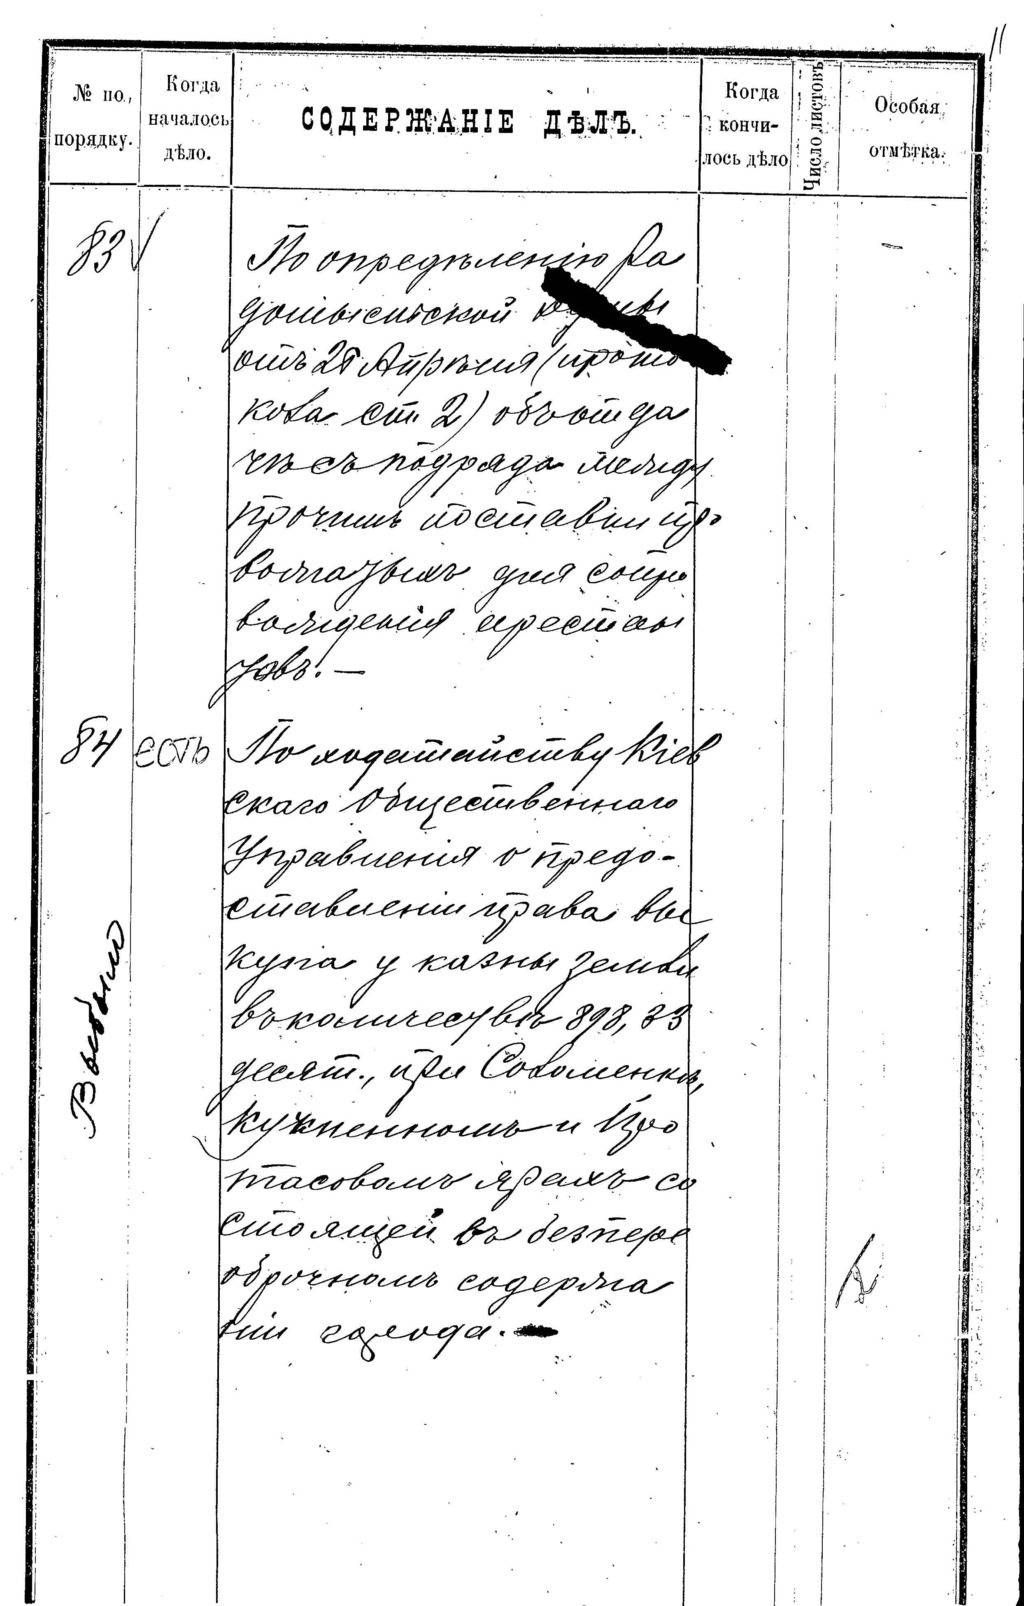 11
№ по порядку.
Когда началось дѣло.
СОДЕРЖАНІЕ ДѢЛЪ.
Когда кончилось дѣло
Число листовъ
Особая отмѣтка.
83
По опредѣленію Ра
домысльской Думы
отъ 28 Апрѣля (прото
кола ст. 2) объ отда
чѣ съ подряда между
прочимъ поставки про
вожатыхъ для сопро
вожденія арестан
товъ. —
84 есть
По ходатайству Кіев
скаго Общественнаго
Управленія о предо-
ставленіи права вы
купа у казны земли
въ количествѣ 898,33
десят., при Соломенкѣ,
Кучменномъ и Про
тасовомъ ярахъ со
стоящей въ безпере
оброчномъ содержа
ніи города. —
Выбыло